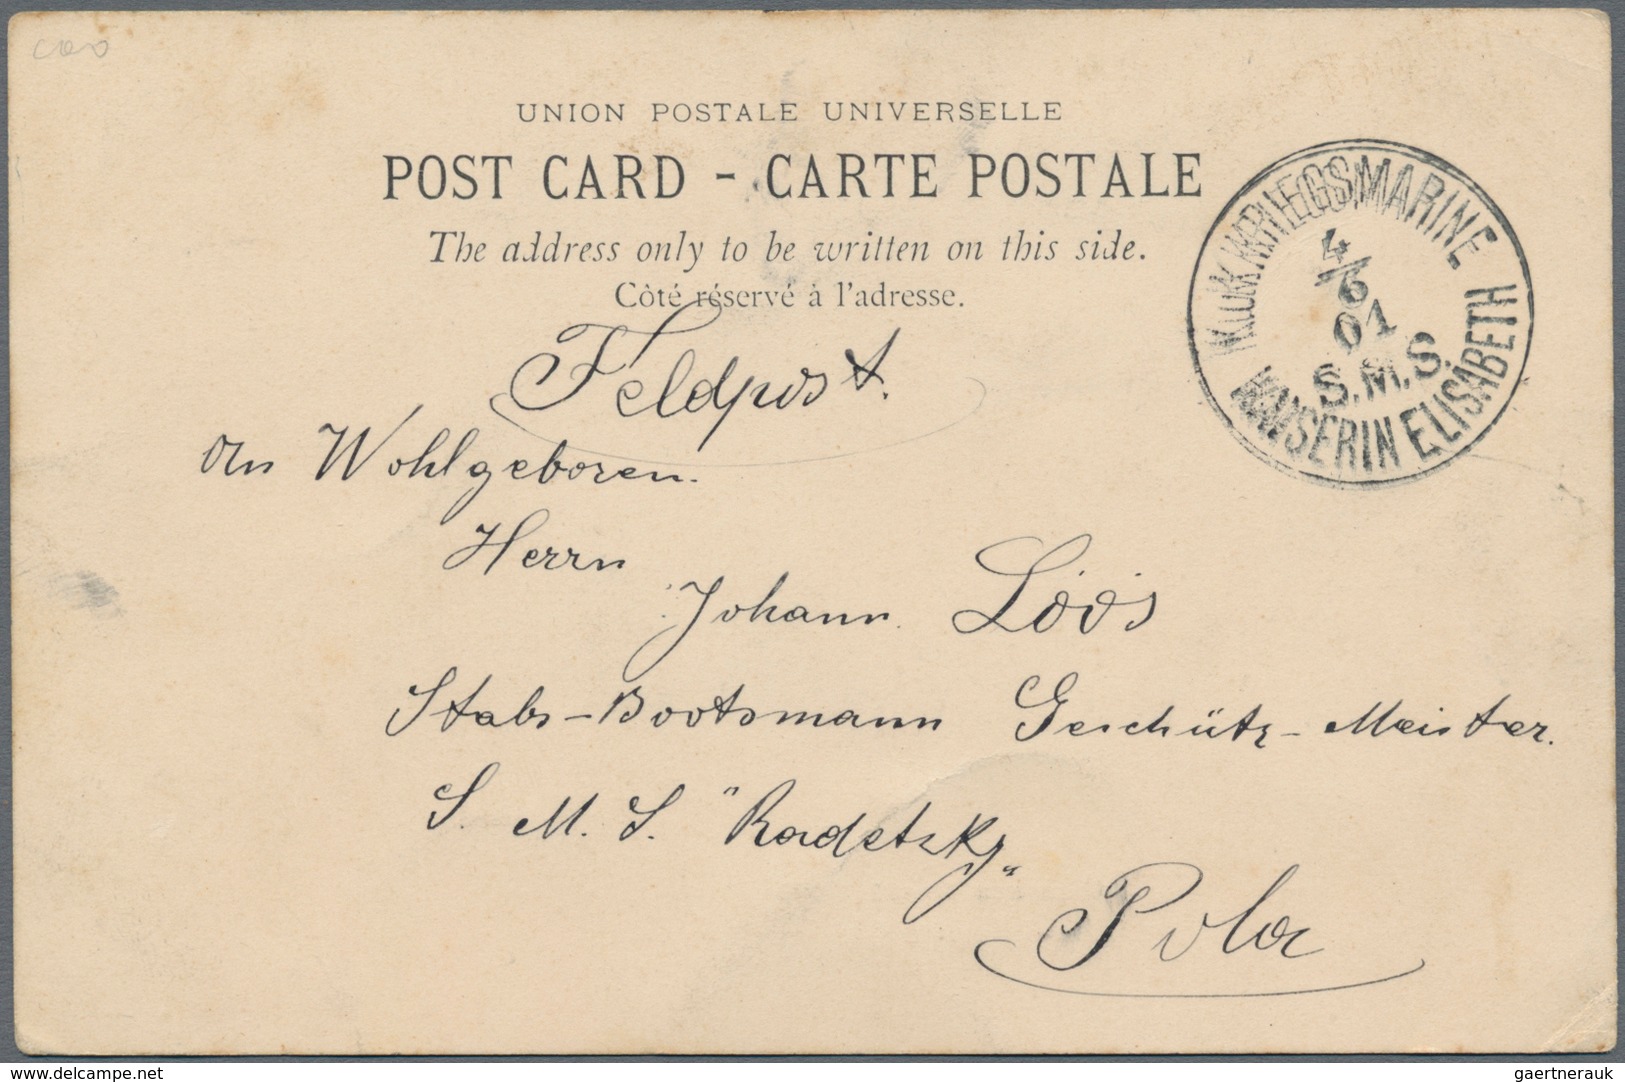 UNION POSTALE UNIVERSELLE
POST CARD - CARTE POSTALE
The address only to be written on this side.
Côté réservé à l'adresse.
K.U.K. KRIEGSMARINE
4/6
01
S.M.S.
KAISERIN ELISABETH
Feldpost.
An Wohlgeboren.
Herrn
Johann Löös
Stabs-Bootsmann Geschütz-Meister.
S. M. S. "Radetzky"
Pola
www.delcampe.net
gaertnerauk